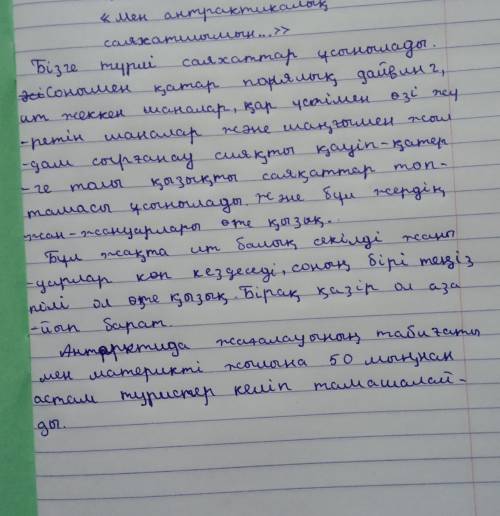 « мен антрактикалық
саяхатшымын...»
Бізге түрлі саяхаттар ұсынылады.
Сонымен қатар полялық дайвинг,
ит жеккен шаналар, қар үстімен өзі жү
-ретін шаналар және шаңғымен жыл
-дам сырғанау сияқты қауіп-қатер
-ге толы қызықты саяқаттар топ-
тамасы ұсынылады. және бұл жердің
жан-жануарлары өте қызық.
Бұл жақта ит балық секілді жану
-уарлар көп кездеседі, соның бірі теңіз
пілі ол өте қызық. Бірақ қазір ол аза
-йып барат.
Антарктида жағалауының табиғаты
мен материкті жылына 50 мыңнан
астам туристер келіп тамашалай-
ды.